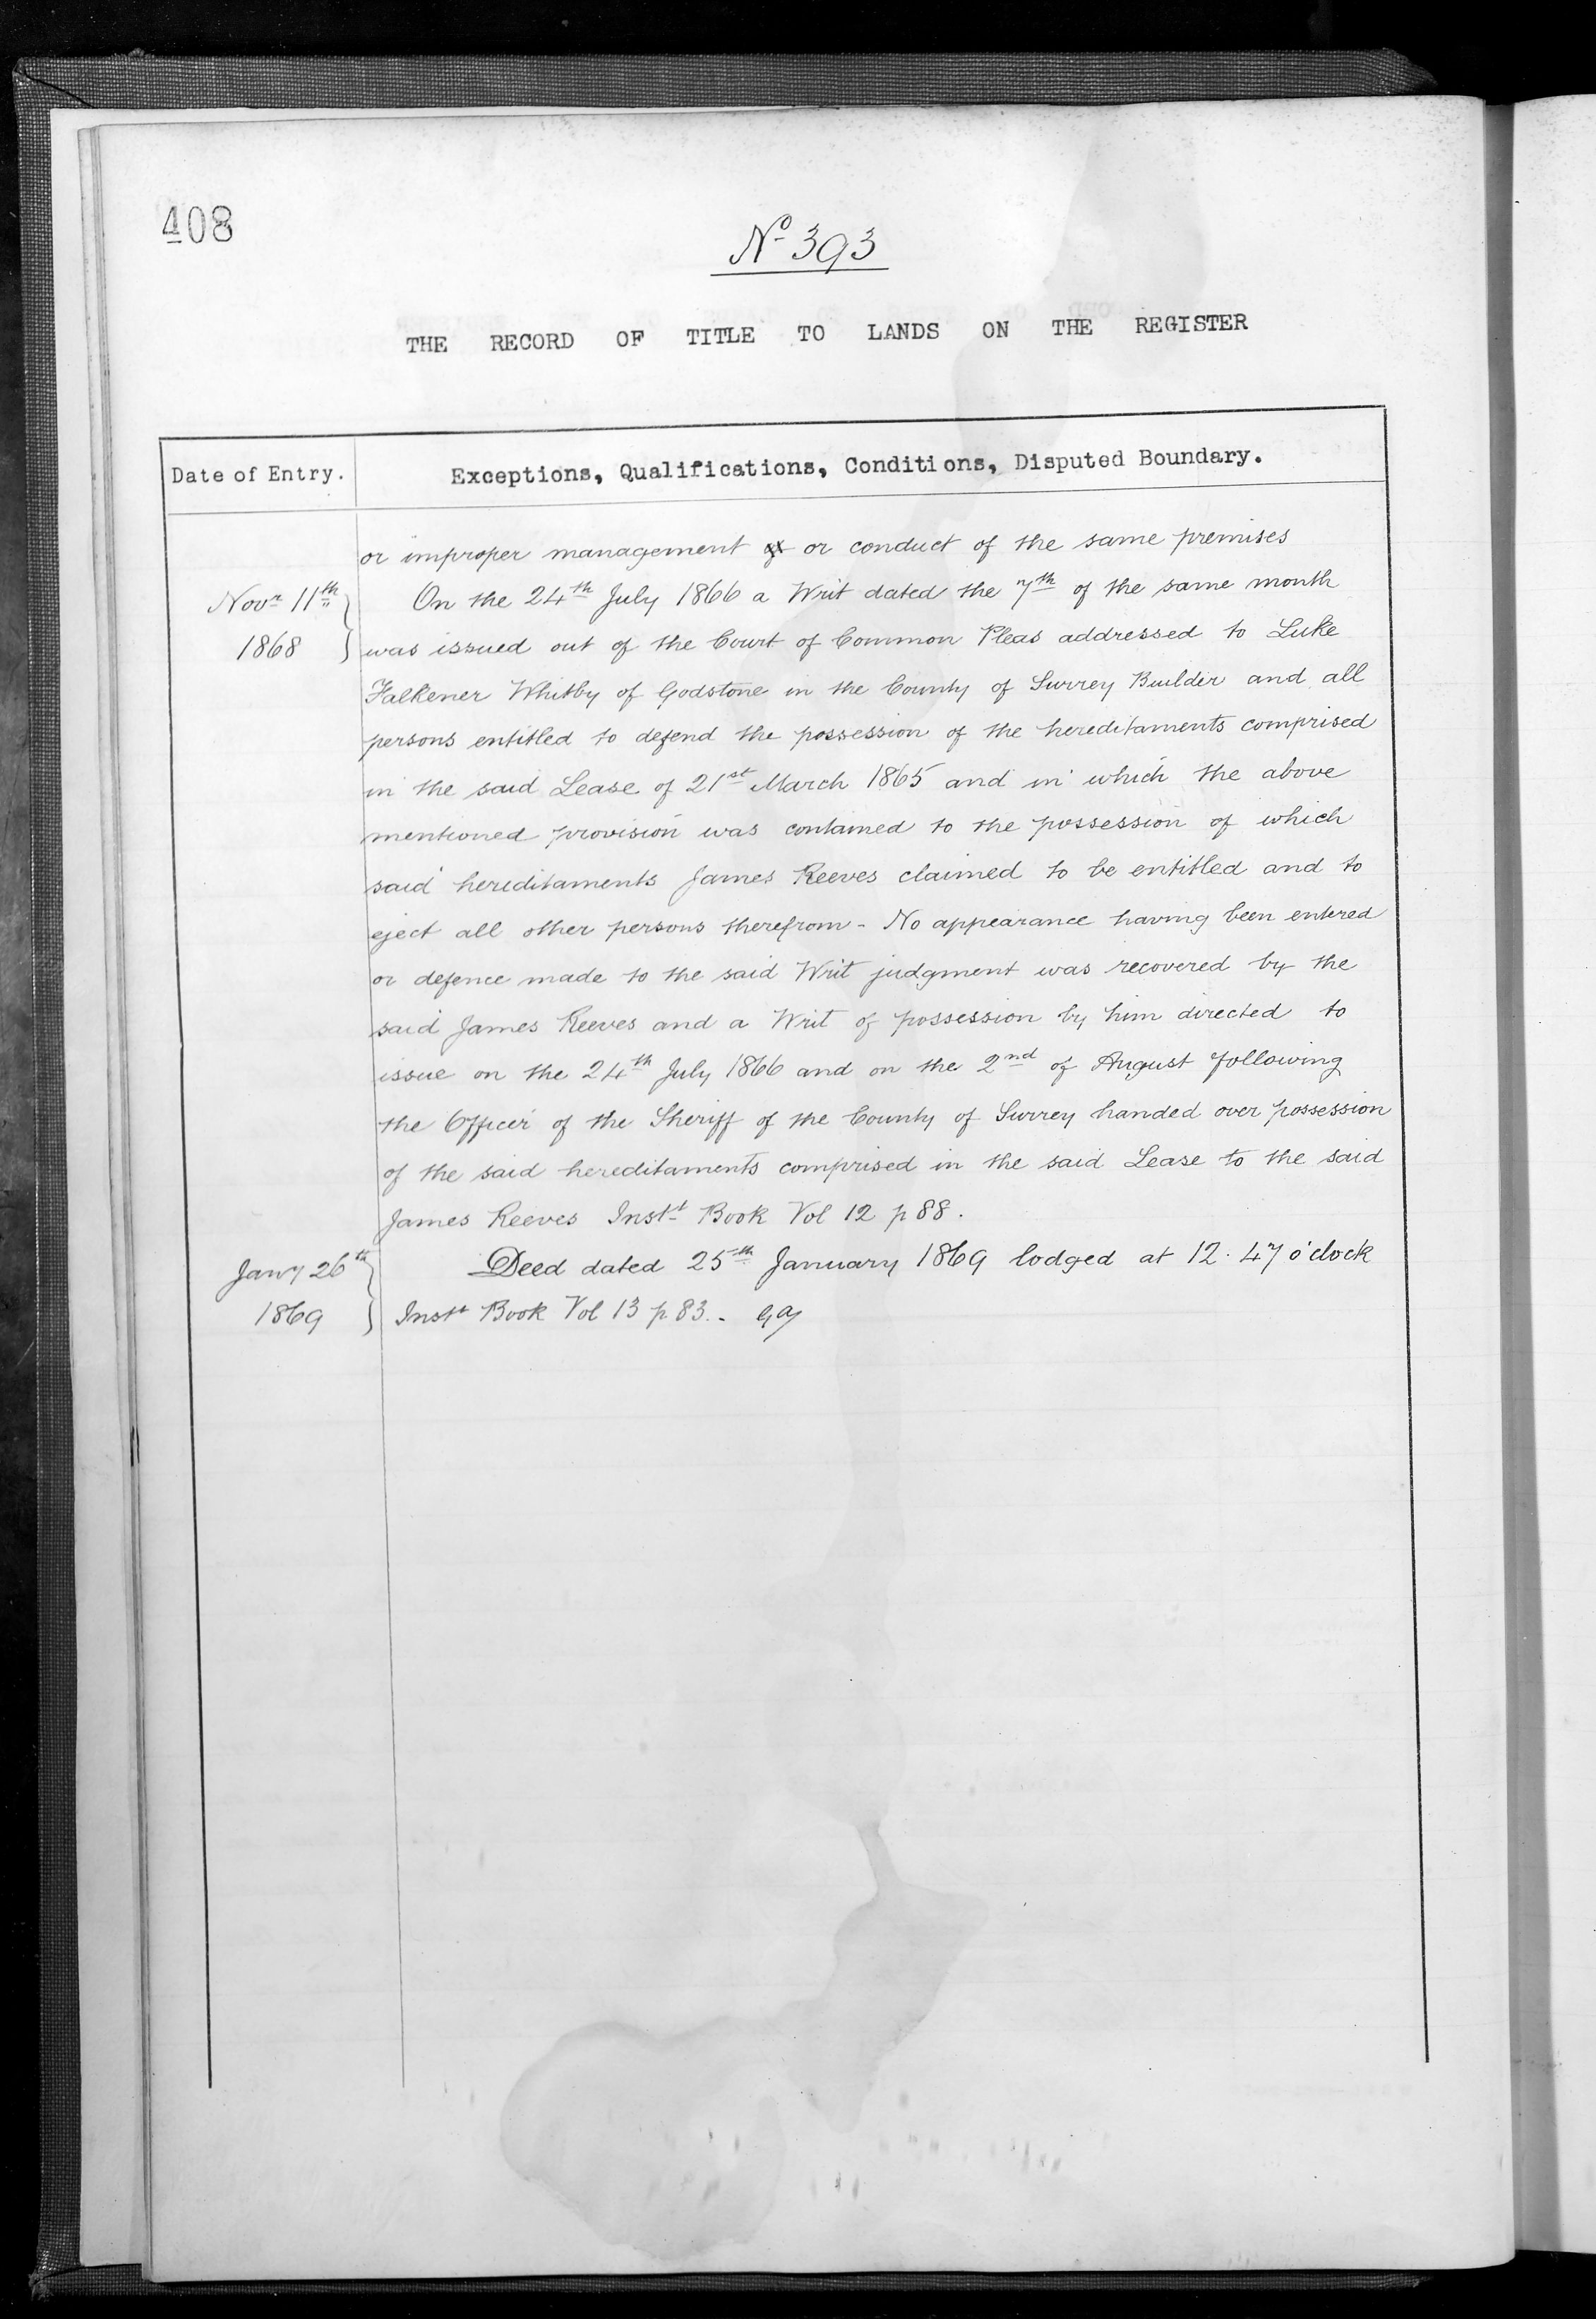 408
No 393
THE RECORD OF TITLE TO LANDS ON THE REGISTER
Date of Entry.
Exceptions, Qualifications, Conditions, Disputed Boundary.
or improper management or conduct of the same premises
Novr 11th
1868
On the 24th July 1866 a Writ dated the 7th of the same month
was issued out of the Court of Common Pleas addressed to Luke
Falkener Whitby of Godstone in the County of Surrey Builder and all
persons entitled to defend the possession of the hereditaments comprised
in the said Lease of 21st March 1865 and in which the above
mentioned provision was contained to the possession of which
said hereditaments James Reeves claimed to be entitled and to
eject all other persons therefrom - No appearance having been entered
or defence made to the said Writ judgment was recovered by the
said James Reeves and a Writ of possession by him directed to
issue on the 24th July 1866 and on the 2nd of August following
the Officer of the Sheriff of the County of Surrey handed over possession
of the said hereditaments comprised in the said Lease to the said
James Reeves Instt Book Vol 12 p 88.
Jany 26th
1869
Deed dated 25th January 1869 lodged at 12.47 o'clock
Instt Book Vol 13 p 83. -